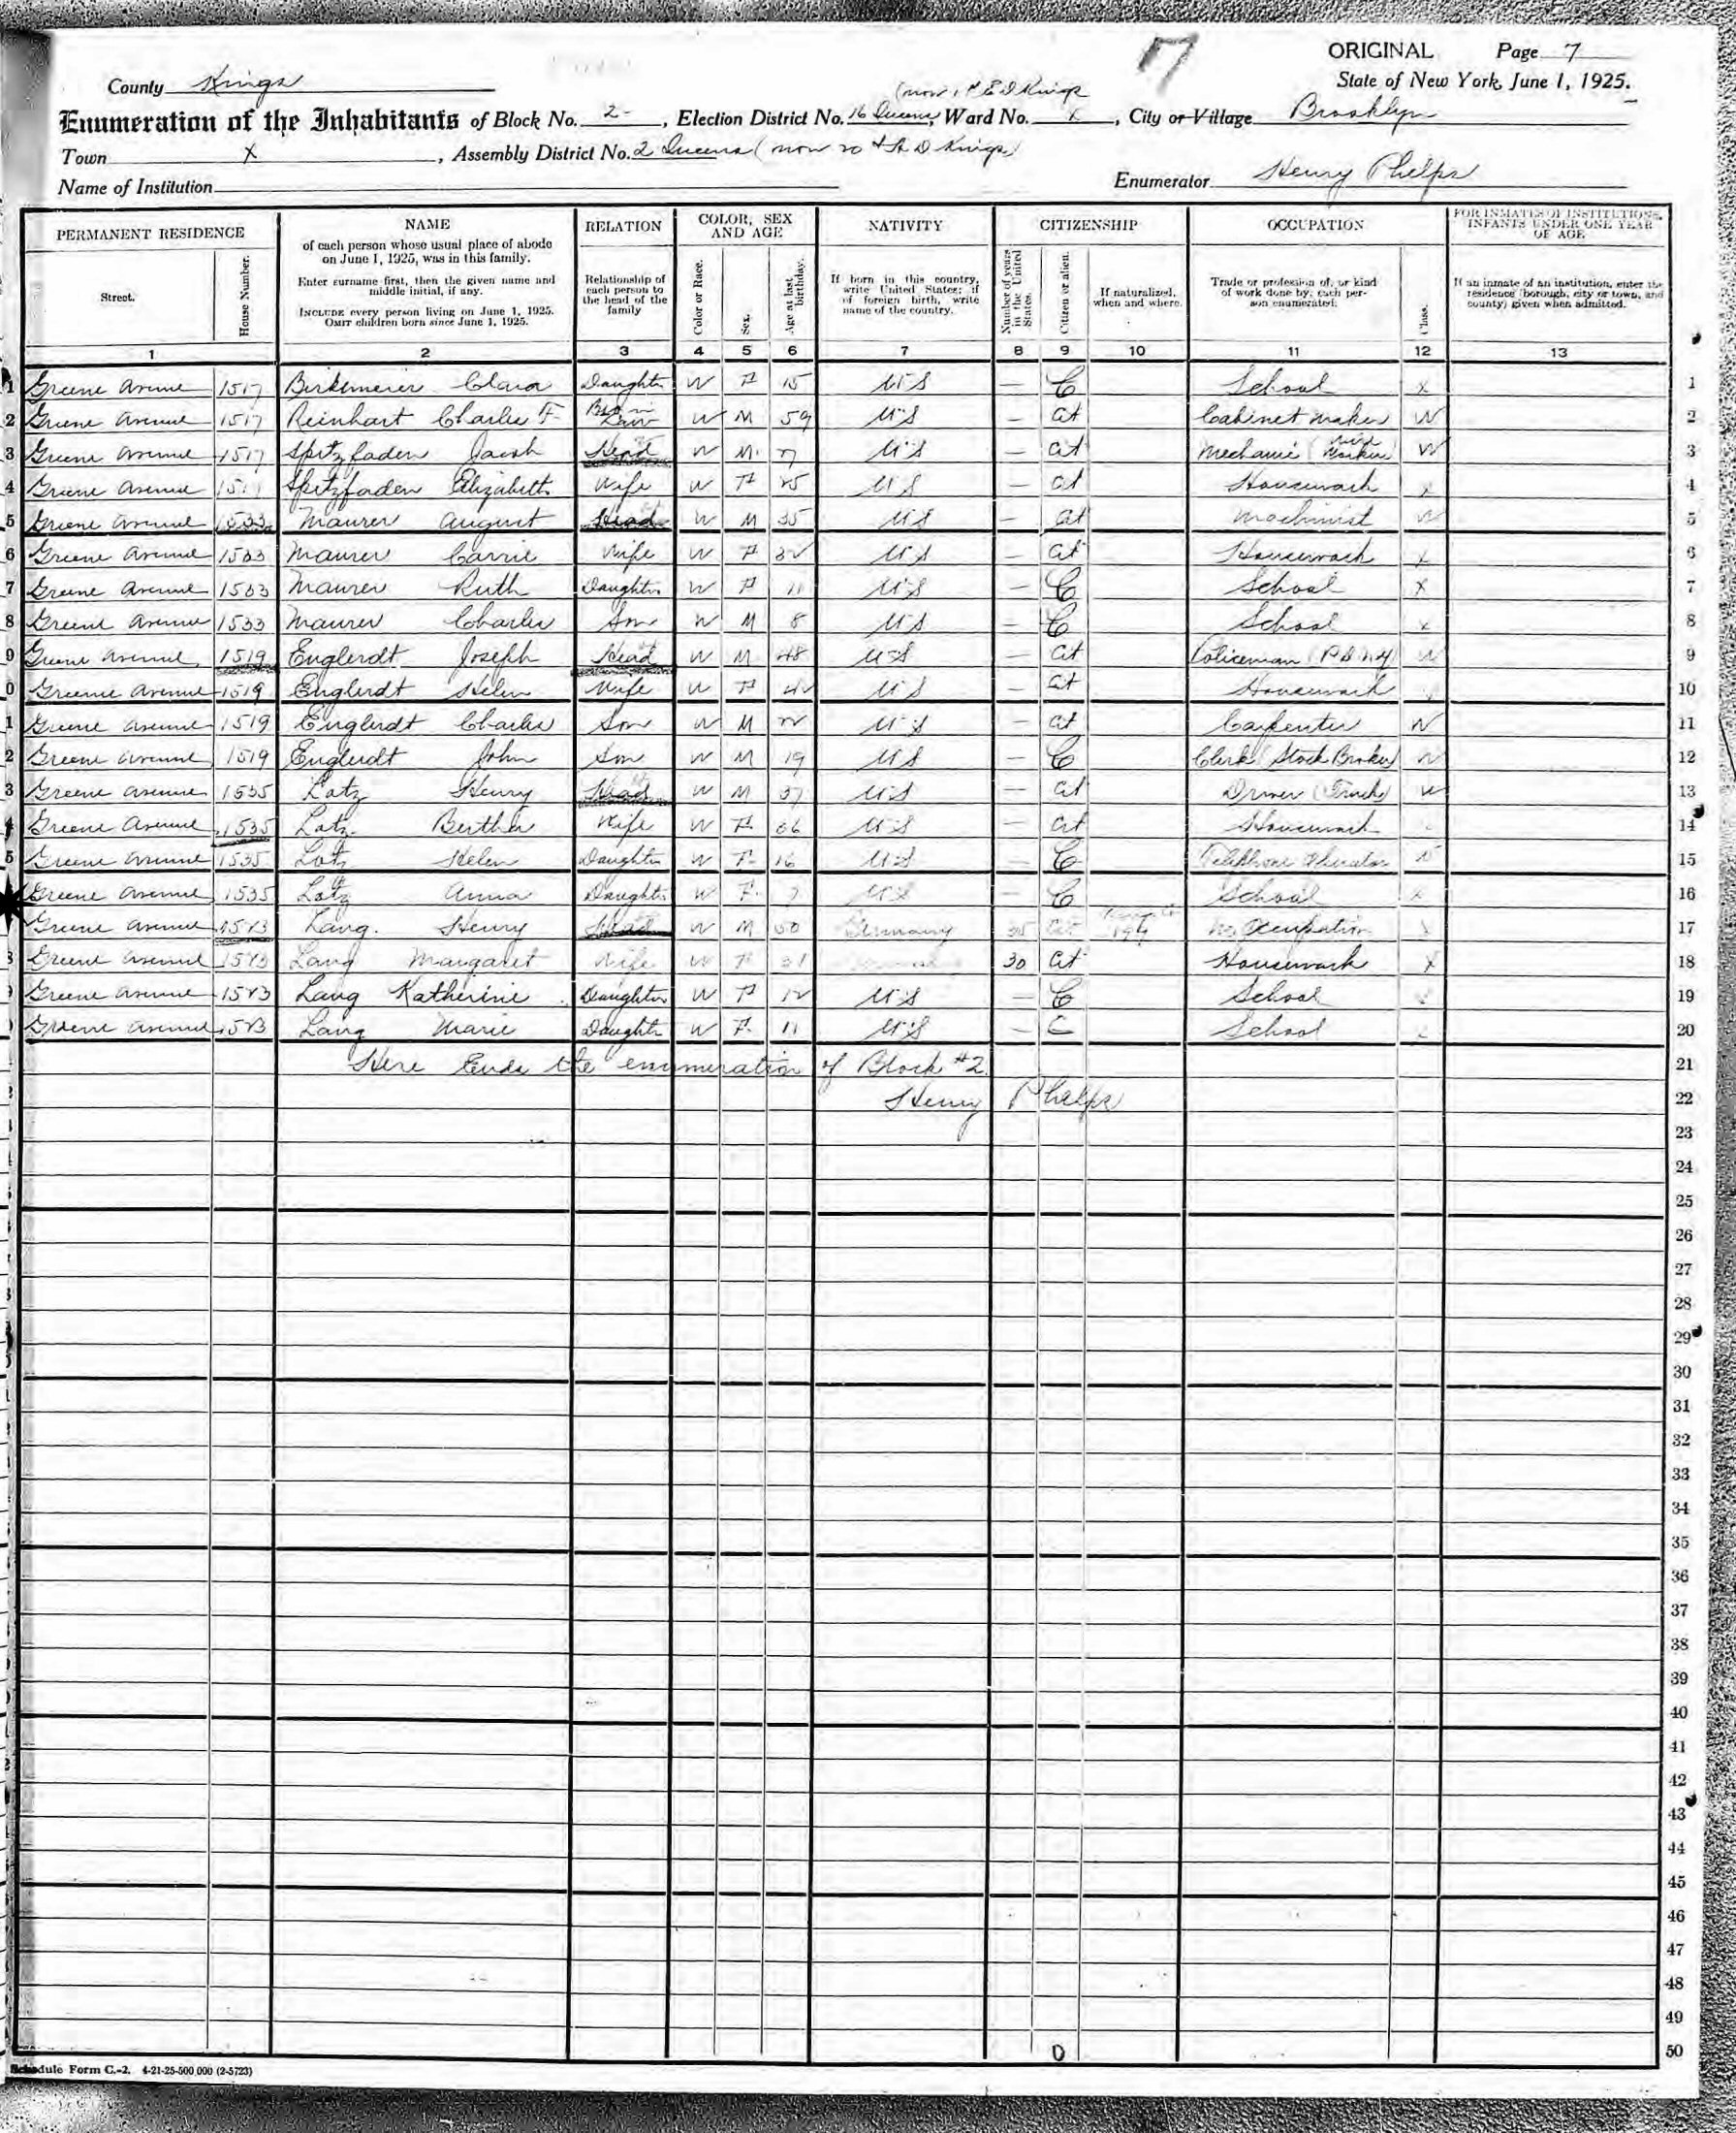 ORIGINAL Page 7
County Kings State of New York, June 1, 1925.
Enumeration of the Inhabitants of Block No. 2, Election District No. 16 Queens, Ward No. X, City or Village Brooklyn
Town X, Assembly District No. 2 Queens (now 20th A D Kings)
Name of Institution Enumerator Henry Phelps
PERMANENT RESIDENCE NAME RELATION COLOR, SEX AND AGE NATIVITY CITIZENSHIP OCCUPATION FOR INMATES OF INSTITUTIONS, INFANTS UNDER ONE YEAR OF AGE
Street. House Number.
of each person whose usual place of abode on June 1, 1925, was in this family.
Enter surname first, then the given name and middle initial, if any.
INCLUDE every person living on June 1, 1925. OMIT children born since June 1, 1925.
Relationship of each person to the head of the family
Color or Race. Sex. Age at last birthday.
If born in this country, write United States; if of foreign birth, write name of the country.
Number of years in the United States. Citizen or alien. If naturalized, when and where.
Trade or profession of, or kind of work done by, each person enumerated. Class.
If an inmate of an institution, enter the residence (borough, city or town, and county) given when admitted.
1 2 3 4 5 6 7 8 9 10 11 12 13
Greene Avenue 1517 Birkemeier Clara Daughter W F 15 U S — C School X 1
Greene Avenue 1517 Reinhart Charles F Bro in Law W M 59 U S — Cit Cabinet maker W 2
Greene Avenue 1517 Spitzfaden Jacob Head W M U S — Cit Mechanic W 3
Greene Avenue 1517 Spitzfaden Elizabeth Wife W F 25 U S — Cit Housework X 4
Greene Avenue 1533 Maurer August Head W M 35 U S — Cit Machinist W 5
Greene Avenue 1533 Maurer Carrie Wife W F 32 U S — Cit Housework X 6
Greene Avenue 1533 Maurer Ruth Daughter W F 11 U S — C School X 7
Greene Avenue 1533 Maurer Charles Son W M 8 U S — C School X 8
Greene Avenue 1519 Englerdt Joseph Head W M 48 U S — Cit Policeman (P D N Y) W 9
Greene Avenue 1519 Englerdt Helen Wife W F 42 U S — Cit Housework 10
Greene Avenue 1519 Englerdt Charles Son W M 22 U S — Cit Carpenter W 11
Greene Avenue 1519 Englerdt John Son W M 19 U S — C Clerk (Stock Broker) W 12
Greene Avenue 1535 Lotz Henry Head W M 37 U S — Cit Driver (Truck) W 13
Greene Avenue 1535 Lotz Bertha Wife W F 36 U S — Cit Housework 14
Greene Avenue 1535 Lotz Helen Daughter W F 16 U S — C Telephone Operator W 15
Greene Avenue 1535 Lotz Anna Daughter W F 7 U S — C School X 16
Greene Avenue Lang Henry Head W M 50 Germany 35 Cit No Occupation X 17
Greene Avenue Lang Margaret Wife W F 30 Cit Housework X 18
Greene Avenue Lang Katherine Daughter W F 12 U S — C School 19
Greene Avenue Lang Marie Daughter W F 11 U S — C School 20
Here Ends the enumeration of Block #2 21
Henry Phelps 22
23
24
25
26
27
28
29
30
31
32
33
34
35
36
37
38
39
40
41
42
43
44
45
46
47
48
49
50
Schedule Form C.-2. 4-21-25-500,000 (2-5723)